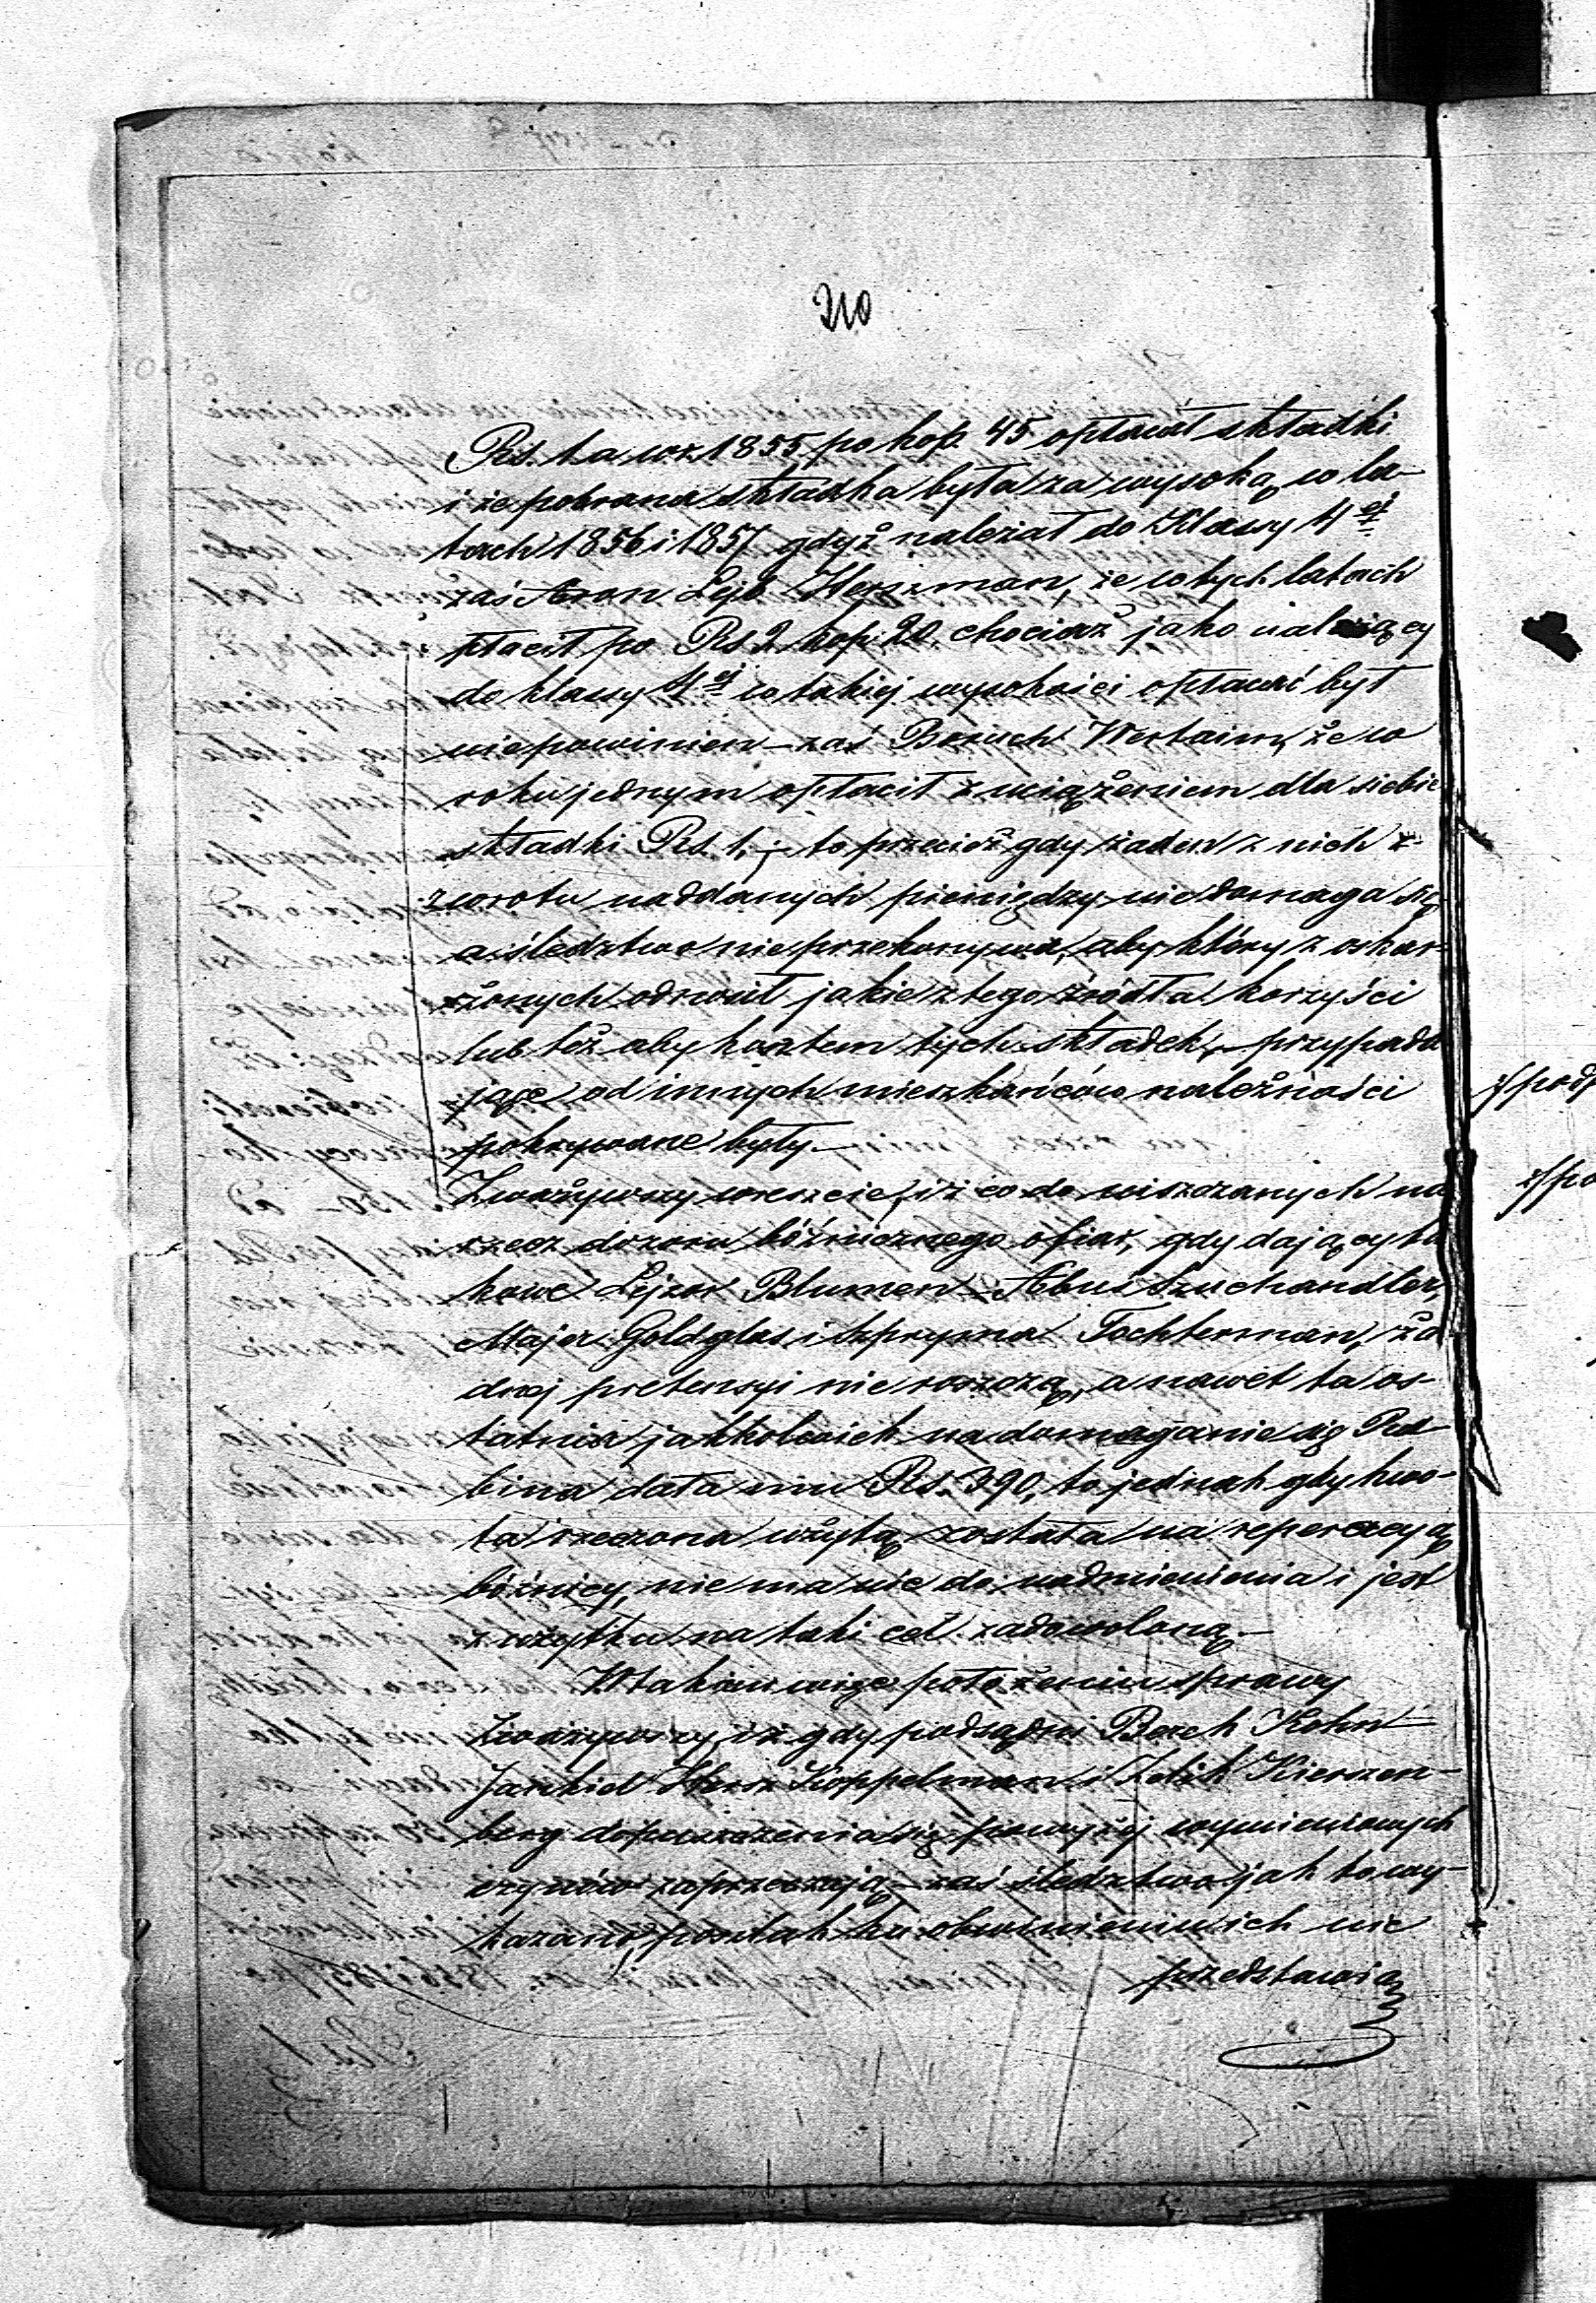 210
Rs. 1 a w r. 1855 po kop 45 opłacał składki
i że pobrana składka była za wysoką w la-
tach 1856 i 1857 gdyż należał do Klassy 4ej
zaś Aron Lejb Herszman, że w tych latach
płacił po Rs 2 kop: 20. chociaż jako należący
do klassy 4ej w takiej wysokości opłacać był
niepowinien – zaś Boruch Wertaim, że w
roku jednym opłacił z uciążeniem dla siebie
składki Rs. 1, – to przecież gdy żaden z nich z-
zwrotu naddanych pieniędzy nie domaga się
a śledztwo nieprzekonywa, aby który z oskar-
żonych odnosił jakie z tego źródła korzyści
lub też aby kosztem tych składek, przypada
jące od innych mieszkańców należności
pokrywane były. –
Zważywszy wreszcie, iż co do uiszczanych na
rzecz dozoru bóżnicznego ofiar, gdy dający ta
kowe Lejzor Blumen – Abuś Szuchandler,
Majer Goldglas i Szprynca Tochterman, ża
dnej pretensyi nie roszczą, a nawet ta os-
tatnia jakkolwiek na domaganie się Ra-
bina dała mu Rs. 390, to jednak gdy kwo-
ta rzeczona użytą została na reperacyą
bóżnicy, nie ma nic do nadmienienia i jest
z użytku na taki cel zadowoloną. –
W takim więc położeniu sprawy
Zważywszy iż gdy podsądni Berek Kohn
Jankiel Hersz Koppelman i Zelik Kierszen-
berg dopuszczenia się powyżej wymienionych
czynów zaprzeczają – zaś śledztwo jak to wy-
kazano, poszlak ku obwinieniu ich nie
przedstawia